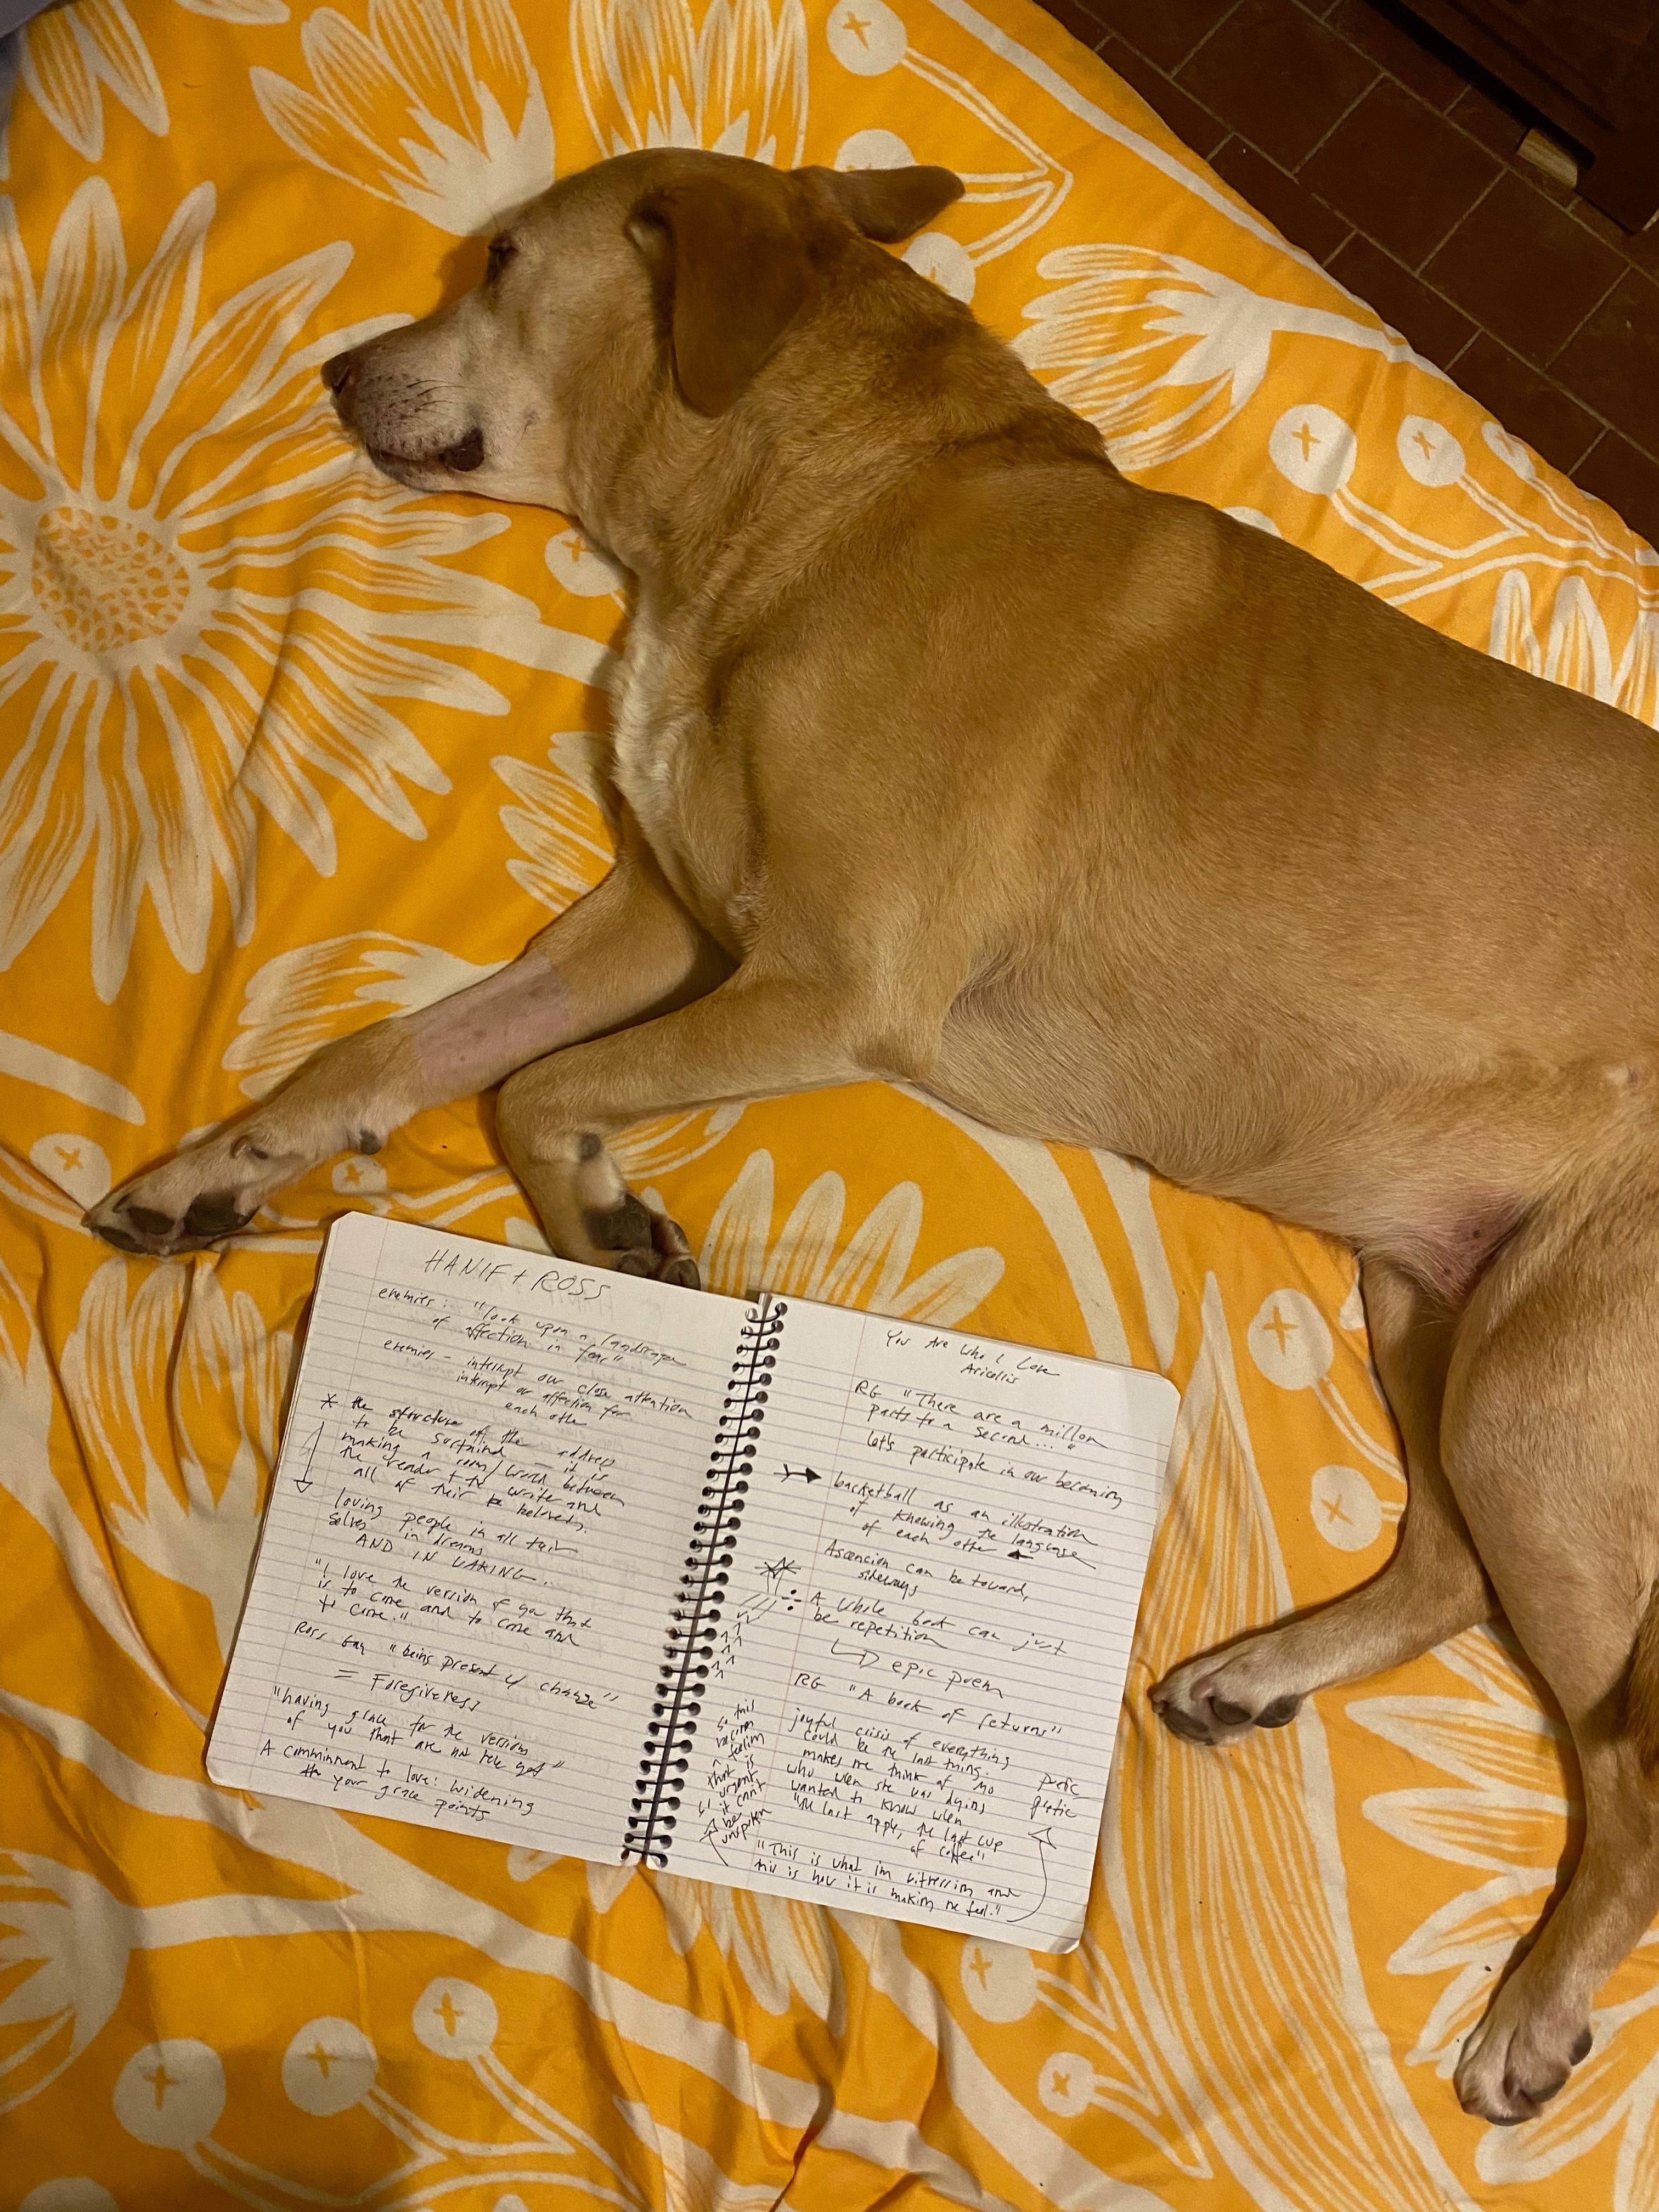 HANIF + ROSS
enemies: "look upon a landscape
of affection in fear"
enemies - interrupt our close attention
interrupt our affection for
each other
* the structure of the address
to be sustained - it is
making a room/world between
the reader + the writer and
all of their beloveds.
loving people in all their
selves in dreams
AND IN WAKING.
"I love the version of you that
is to come and to come and
to come."
Ross Gay "being present w/ change"
= Forgiveness
"having grace for the versions
of you that are not here yet"
A commitment to love: widening
your grace points
You Are Who I Love
Aricellis
RG "There are a million
parts to a second..."
let's participate in our becoming
basketball as an illustration
of knowing the language
of each other
Ascension can be toward,
sideways
A whole book can just
be repetition
epic poem
RG "A book of returns"
joyful crisis of everything
could be the last thing.
makes me think of Mo
who when she was dying
wanted to know when
"the last apple, the last cup
of coffee"
"This is what im witnessing and
this is how it is making me feel."
so this
a feeling
that is
so urgent
it can't
be
unspoken